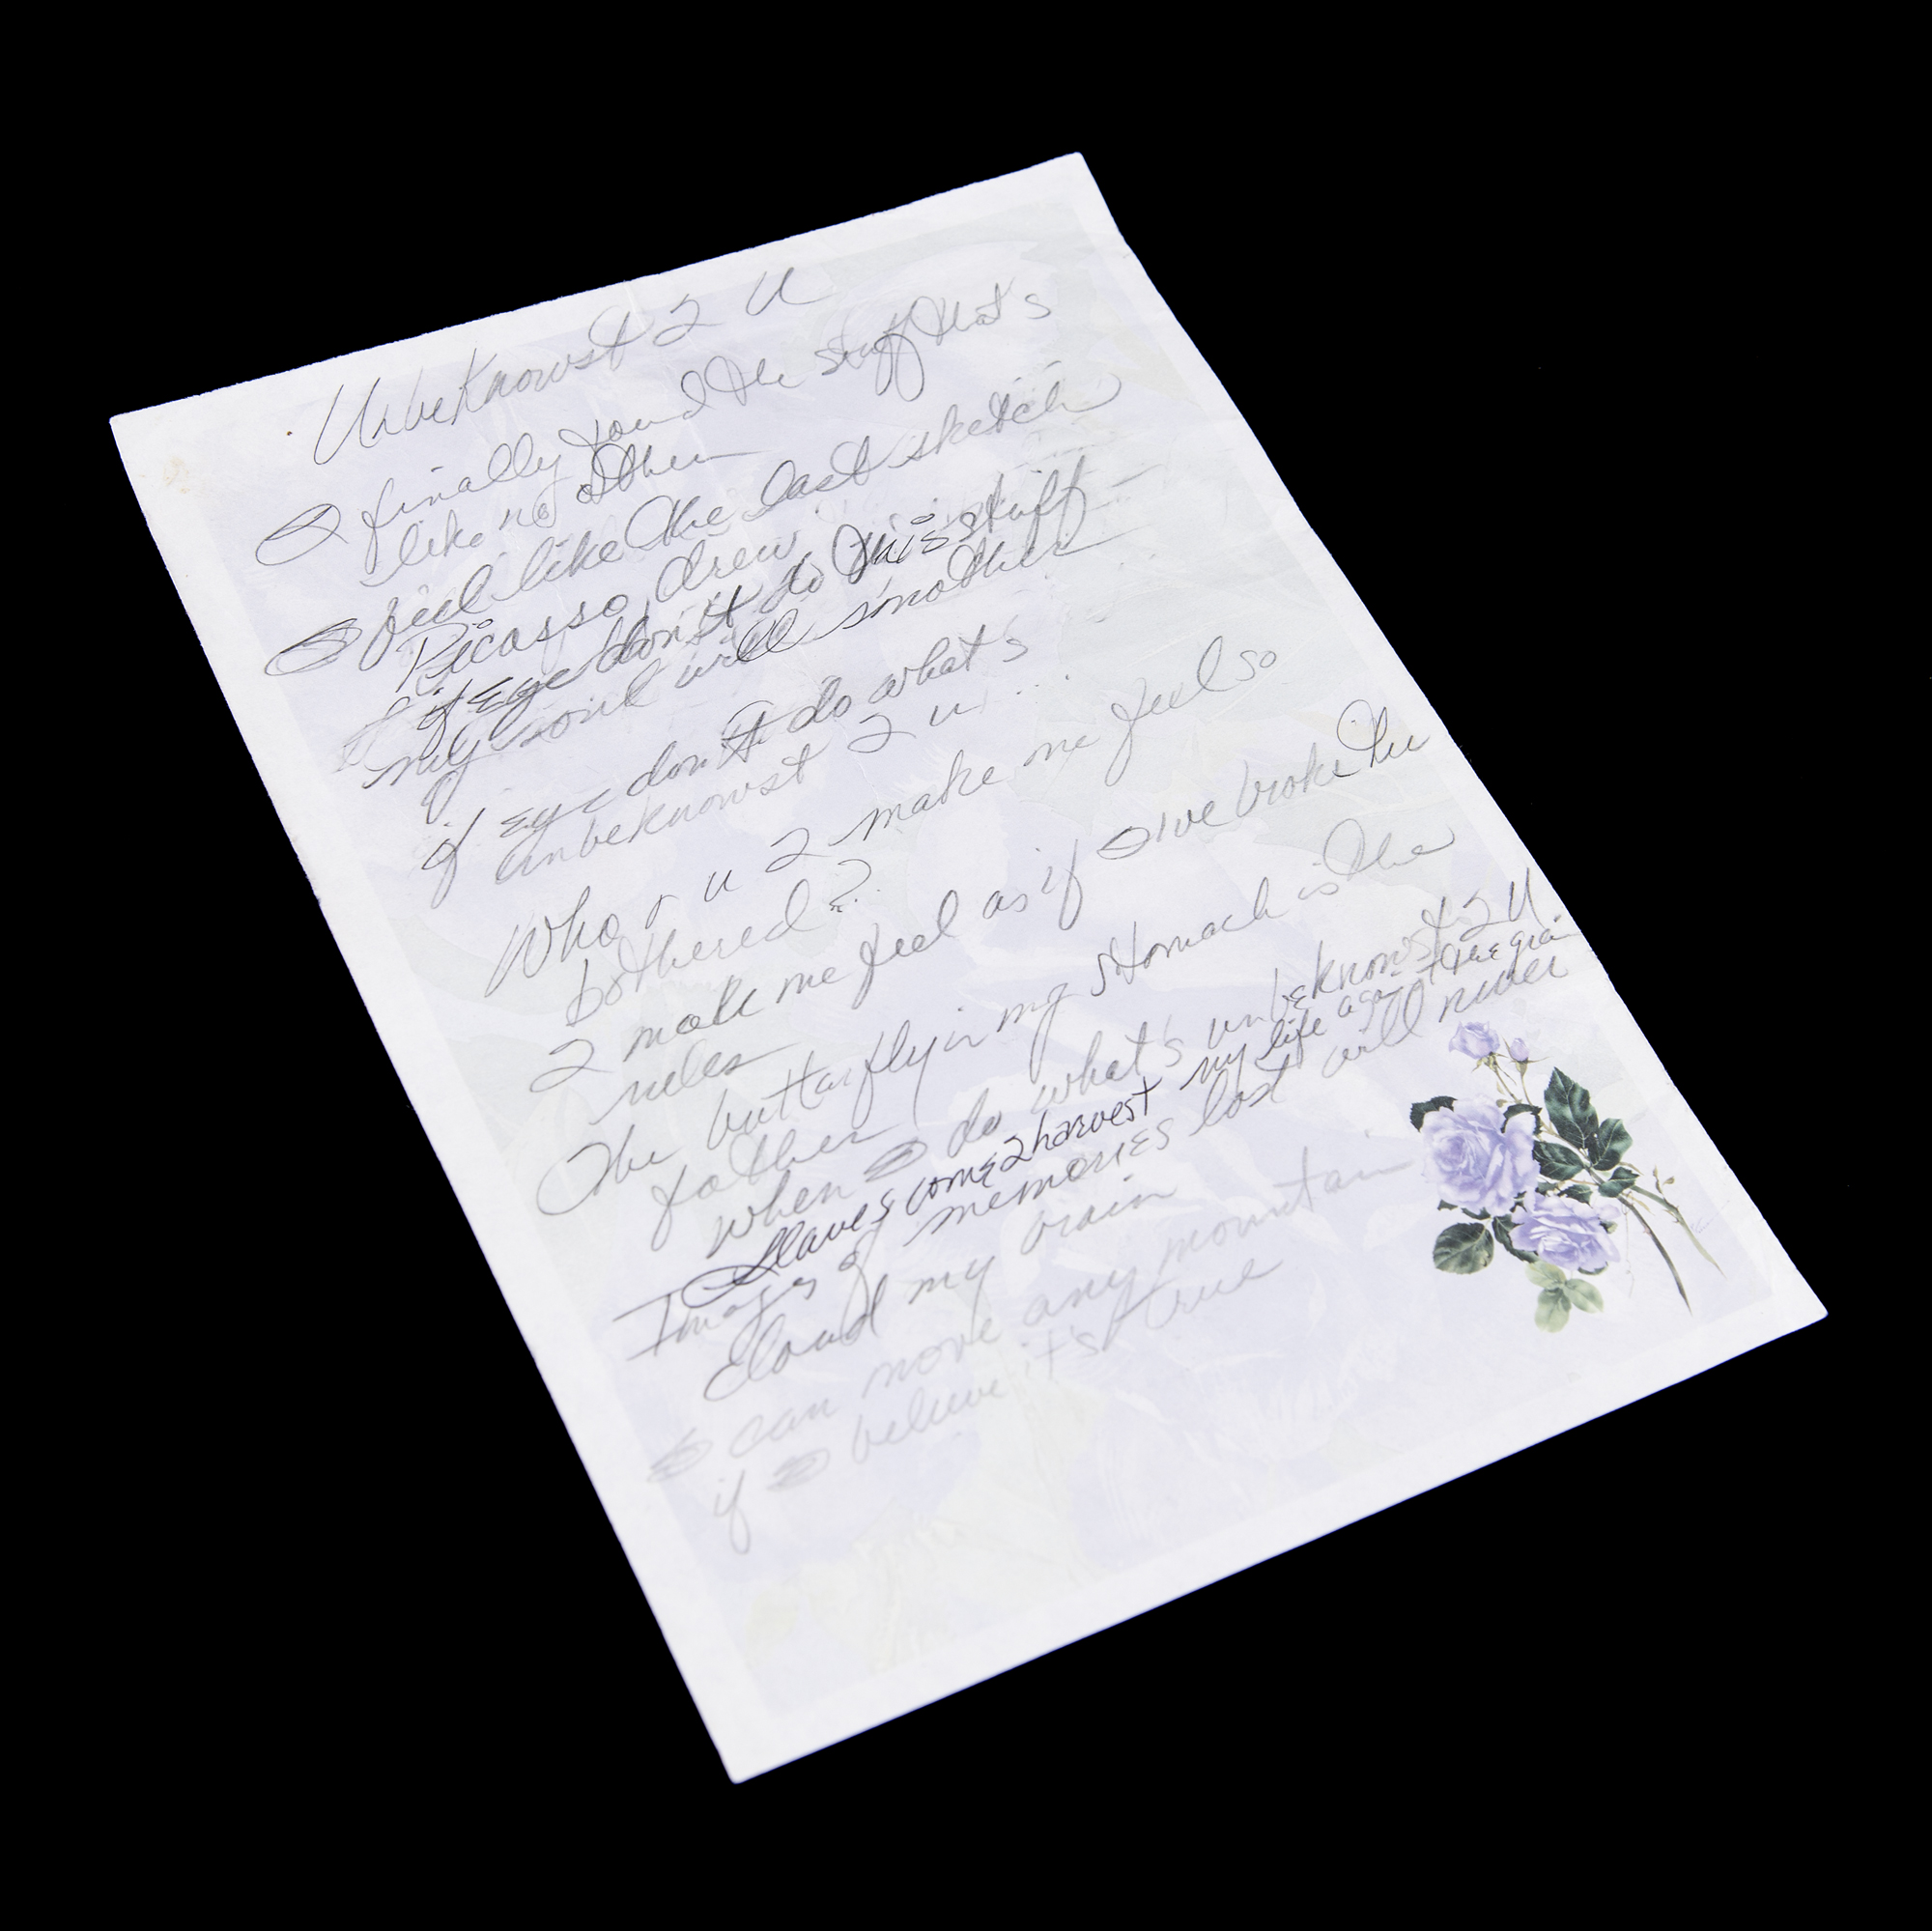 UnbeKnowst 2 U
finally found the stuff that's
like no other
feel like the last sketch
Picasso drew
if Eye don't do this stuff
my soul will smother
if Eye don't do what's
unbeknownst 2 u...
Who r u 2 make me feel so
bothered?
2 make me feel as if I've broke the
rules
The butterfly in my stomach is the
father
when do what's unbeknowst 2 U
Slaves come 2 harvest my life against the grain
Images of memories lost will never
cloud my brain
can move any mountain
if believe it's true